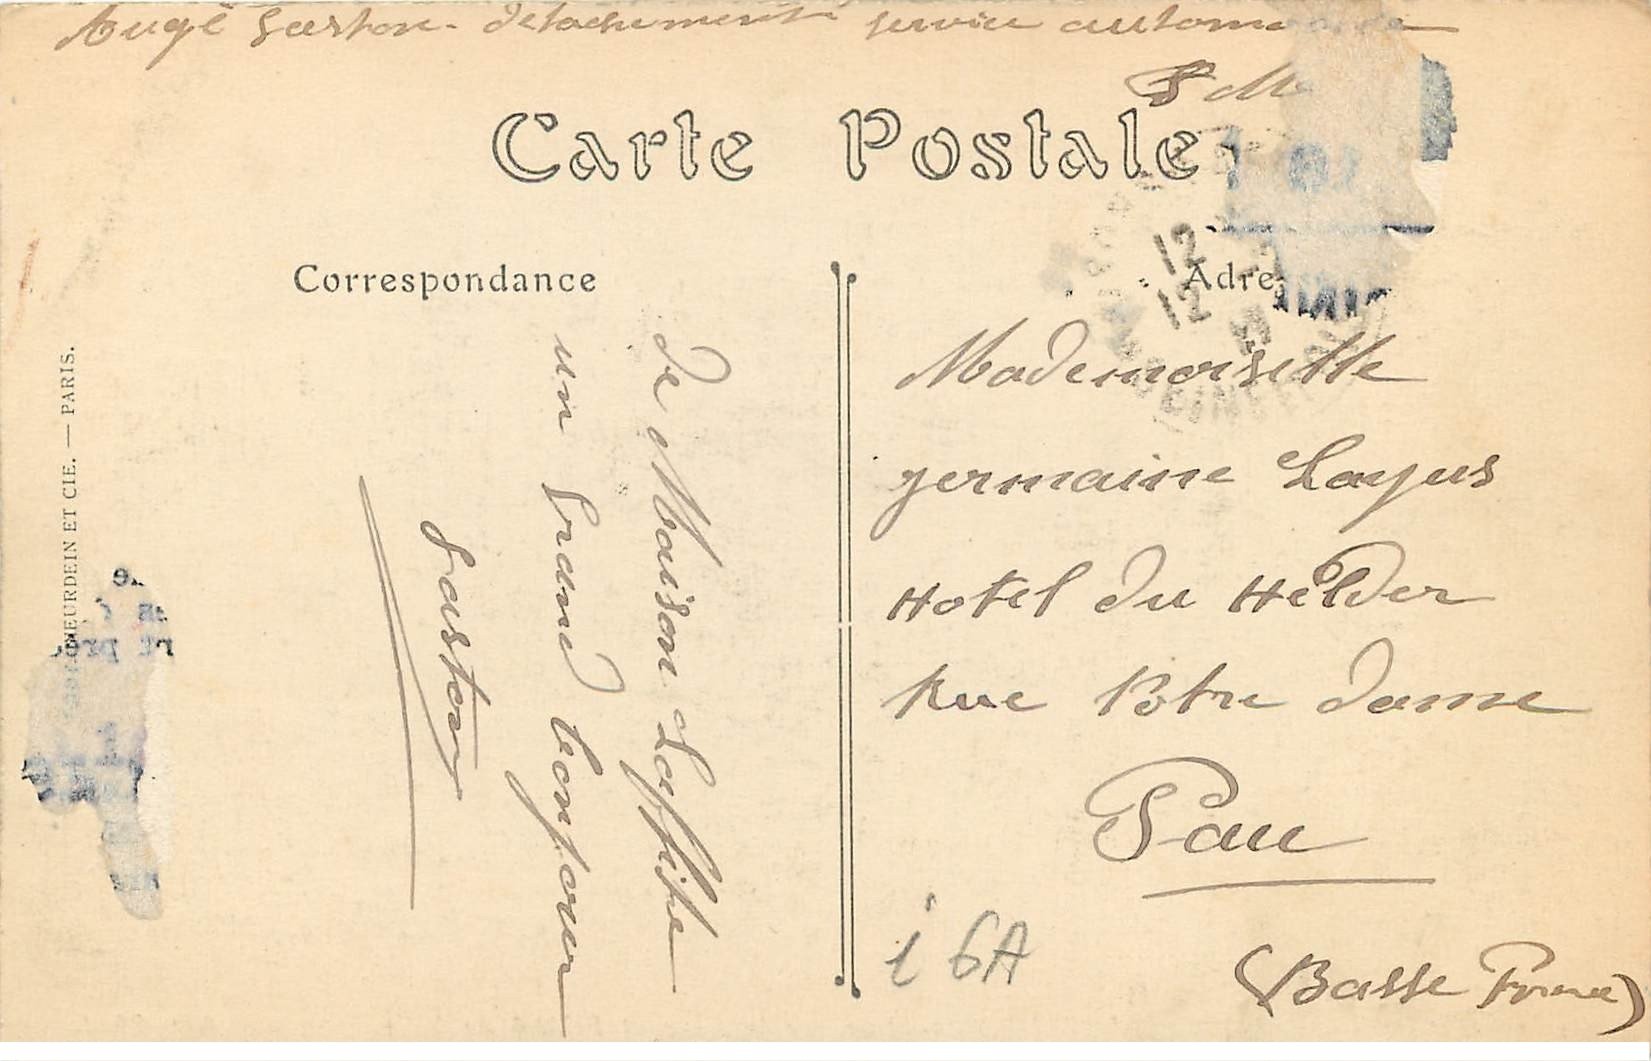 Augé Gaston - détachement service automobile
S M
Carte Postale
Correspondance
Adre
NEURDEIN ET CIE. — PARIS.
de Maison Laffitte
un Grand bonjour
Gaston
12
12
Mademoiselle
germaine Layus
Hotel du Hélder
Rue Notre dame
Pau
(Basse Pyrenee)
i 6A